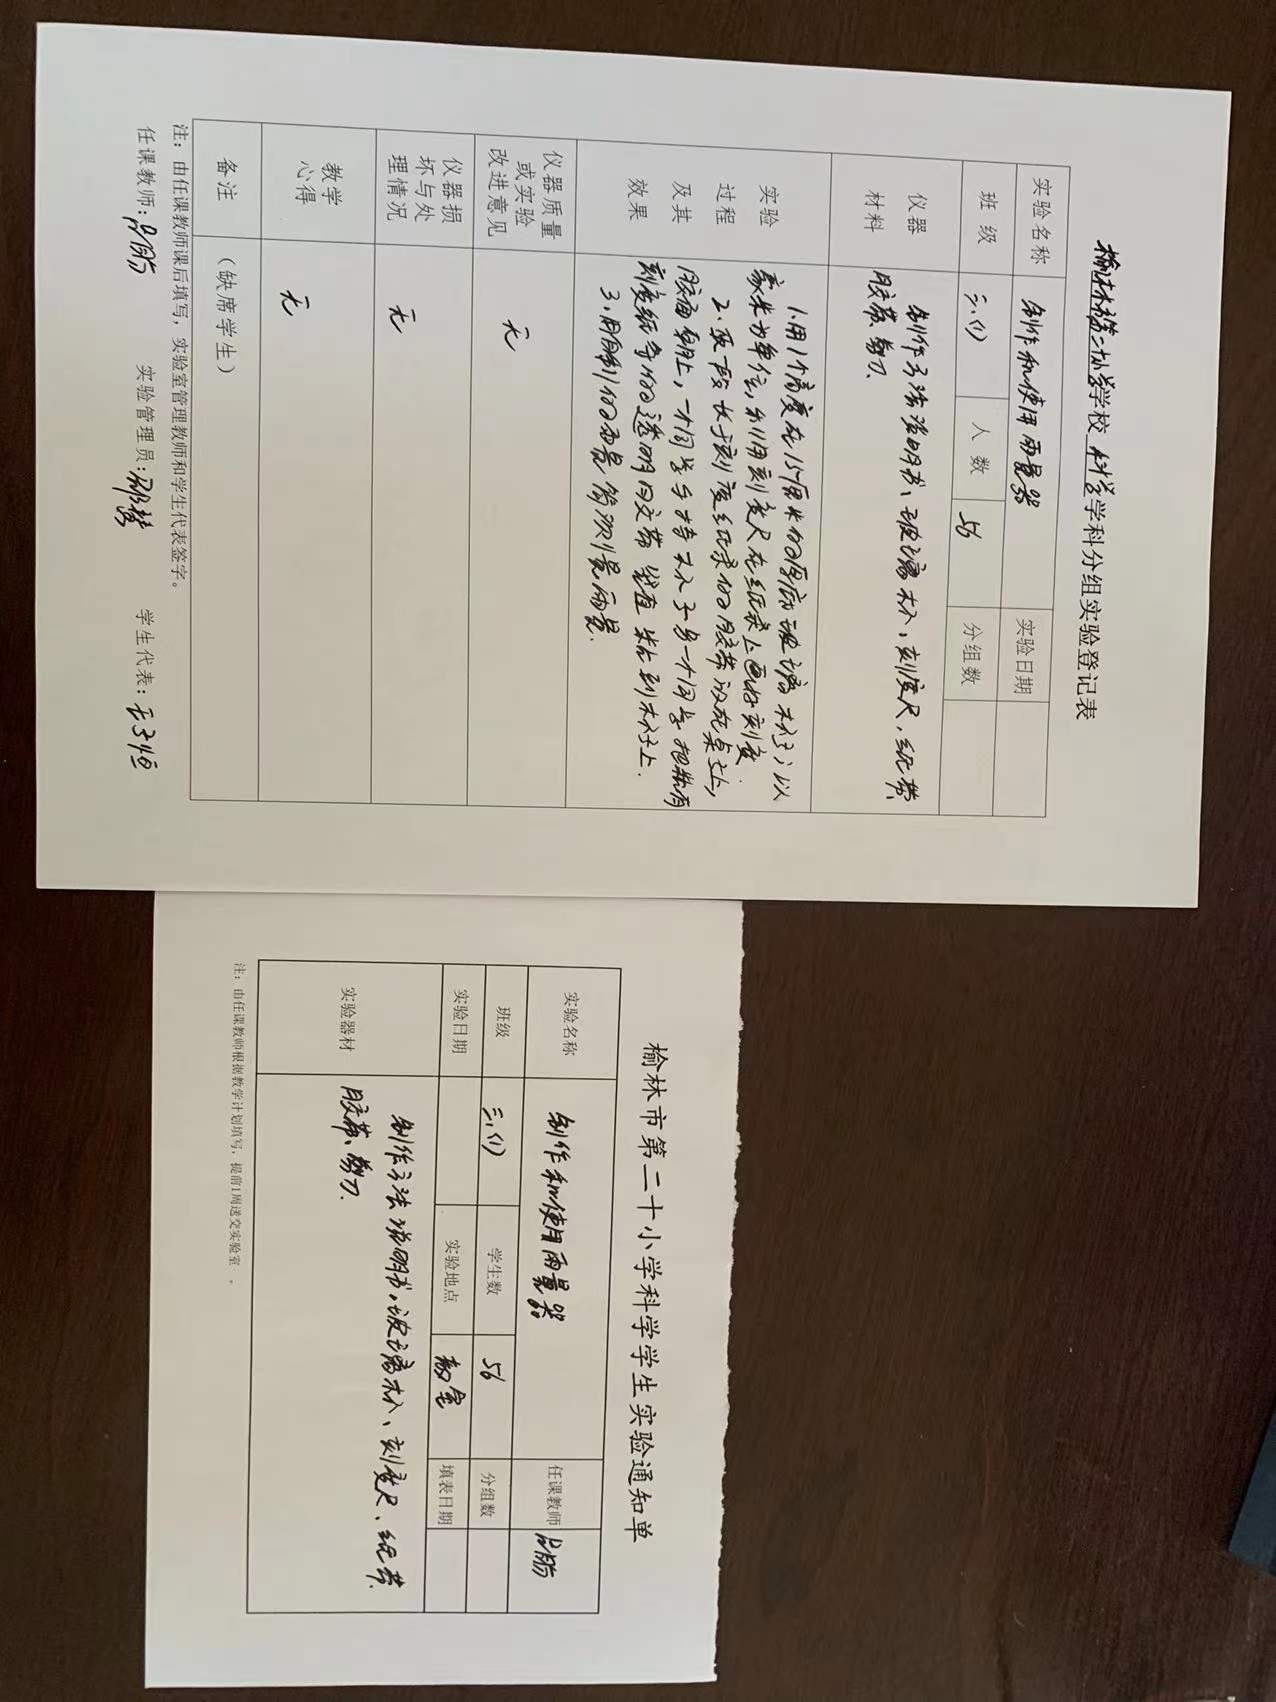 榆林市第二十小学学校 科学 学科分组实验登记表
实验名称 制作和使用雨量器 实验日期
班级 三.(1) 人数 56 分组数
仪器材料 制作方法说明书、玻璃杯、刻度尺、纸带、
胶带、剪刀.
实验过程及其效果 1.用1个高度在15厘米的厚底玻璃杯子;以
毫米为单位,利用刻度尺在纸条上画好刻度.
2.取一段长于刻度纸条的胶带放在桌子上,
胶面朝上,一个同学手持杯子另一个同学把粘有
刻度纸条的透明胶带竖直粘到杯子上.
3.用自制的雨量筒测量雨量.
仪器质量或实验改进意见 无
仪器损坏与处理情况 无
教学心得 无
备注 (缺席学生)
注:由任课教师课后填写,实验室管理教师和学生代表签字。
任课教师: 实验管理员: 学生代表:
榆林市第二十小学科学学生实验通知单
实验名称 制作和使用雨量器 任课教师
班级 三.(1) 学生数 56 分组数
实验日期 实验地点 教室 填表日期
实验器材 制作方法说明书、玻璃杯、刻度尺、纸带.
胶带、剪刀.
注:由任课教师根据教学计划填写,提前1周送交实验室。